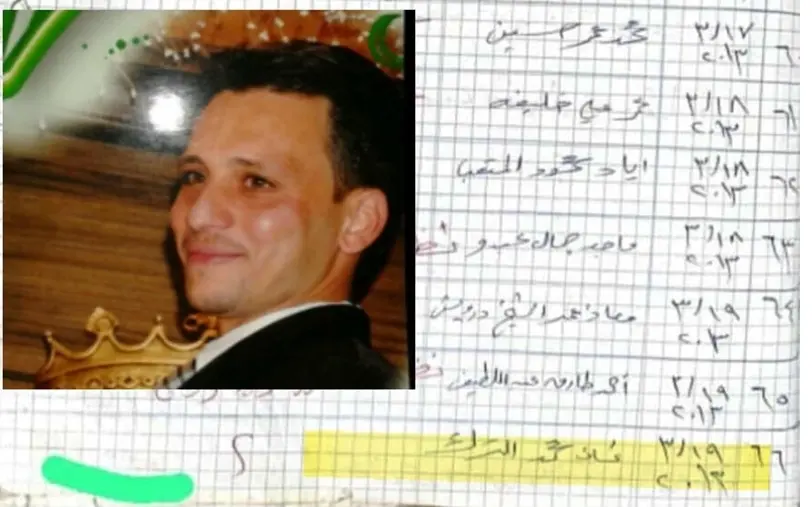 ٦٠ ٣/١٧ محمد عمر حسين
٢٠١٣
٦١ ٣/١٨ خليفه
٢٠١٣
٦٢ ٣/١٨ اياد محمود المتعب
٢٠١٣
٦٣ ٣/١٨ ماجد جمال عبدو
٢٠١٣
٦٤ ٣/١٩ معاذ محمد الشيخ درويش
٢٠١٣
٦٥ ٣/١٩ أحمد طارق عبد اللطيف
٢٠١٣
٦٦ ٣/١٩ محمد
٢٠١٣